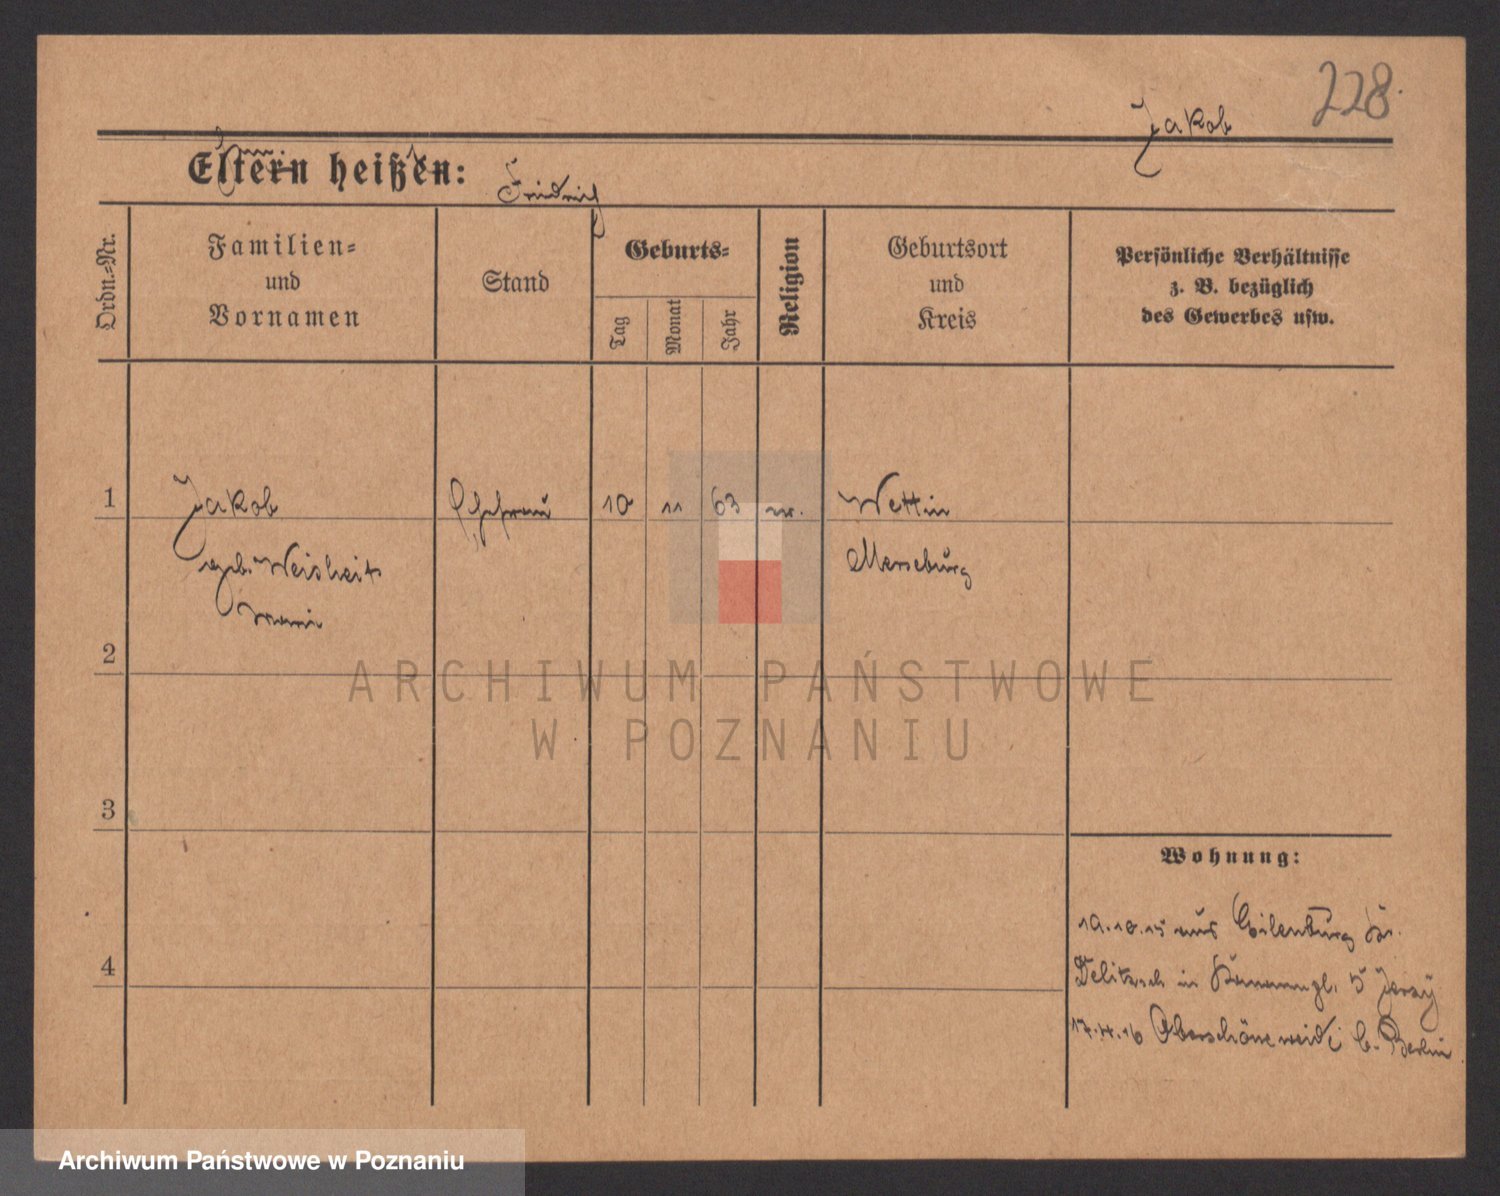 228.
Jakob
Eltern heißen:
Friedrich
Ordn.=Nr.
Familien=
und
Vornamen
Stand
Geburts=
Tag
Monat
Jahr
Religion
Geburtsort
und
Kreis
Persönliche Verhältnisse
z. B. bezüglich
des Gewerbes usw.
1
Jakob
Ehefrau
10
11
63
Wettin
geb. Weisheit
Merseburg
2
3
4
Wohnung:
19.10.15 aus Eilenburg Kr.
Delitzsch in 5
17.4.16 Oberschöneweide b. Berlin
ARCHIWUM PAŃSTWOWE
W POZNANIU
Archiwum Państwowe w Poznaniu